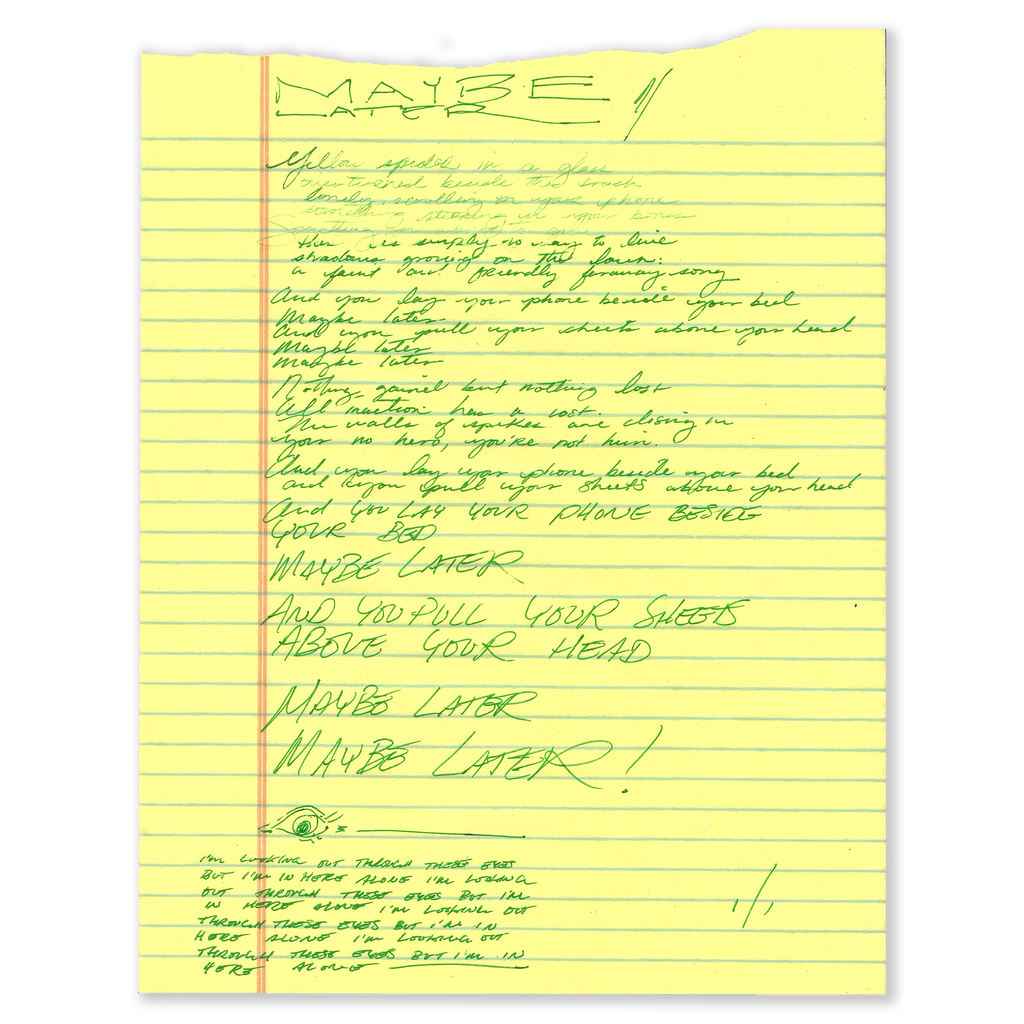 MAYBE
LATER
Yellow spider in a glass
overturned beside the trash
lonely, scrolling on your phone
something sticking in your bones
Something
there is simply no way to live
shadows growing on the lawn:
a faint and friendly faraway song
And you lay your phone beside your bed
Maybe later
And you pull your sheets above your head
Maybe later
Maybe later
Nothing gained but nothing lost
All inaction has a cost.
The walls of spikes are closing in
your no hero, you're not him.
And you lay your phone beside your bed
and you pull your sheets above your head
And YOU LAY YOUR PHONE BESIDE
YOUR BED
MAYBE LATER
AND YOU PULL YOUR SHEETS
ABOVE YOUR HEAD
MAYBE LATER
MAYBE LATER!
I'M LOOKING OUT THROUGH THESE EYES
BUT I'M IN HERE ALONE I'M LOOKING
OUT THROUGH THESE EYES BUT I'M
IN HERE ALONE I'M LOOKING OUT
THROUGH THESE EYES BUT I'M IN
HERE ALONE I'M LOOKING OUT
THROUGH THESE EYES BUT I'M IN
HERE ALONE